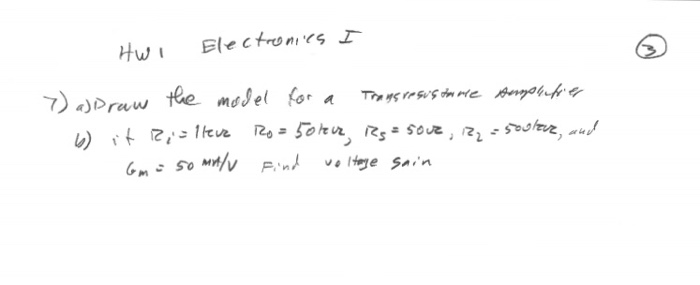 HW1 Electronics I
3
7) a) Draw the model for a Transresistance Amplifier
b) if Ri = 1kΩ Ro = 50kΩ, Rs = 50Ω, RL = 500kΩ, and
Gm = 50 mA/V Find voltage gain